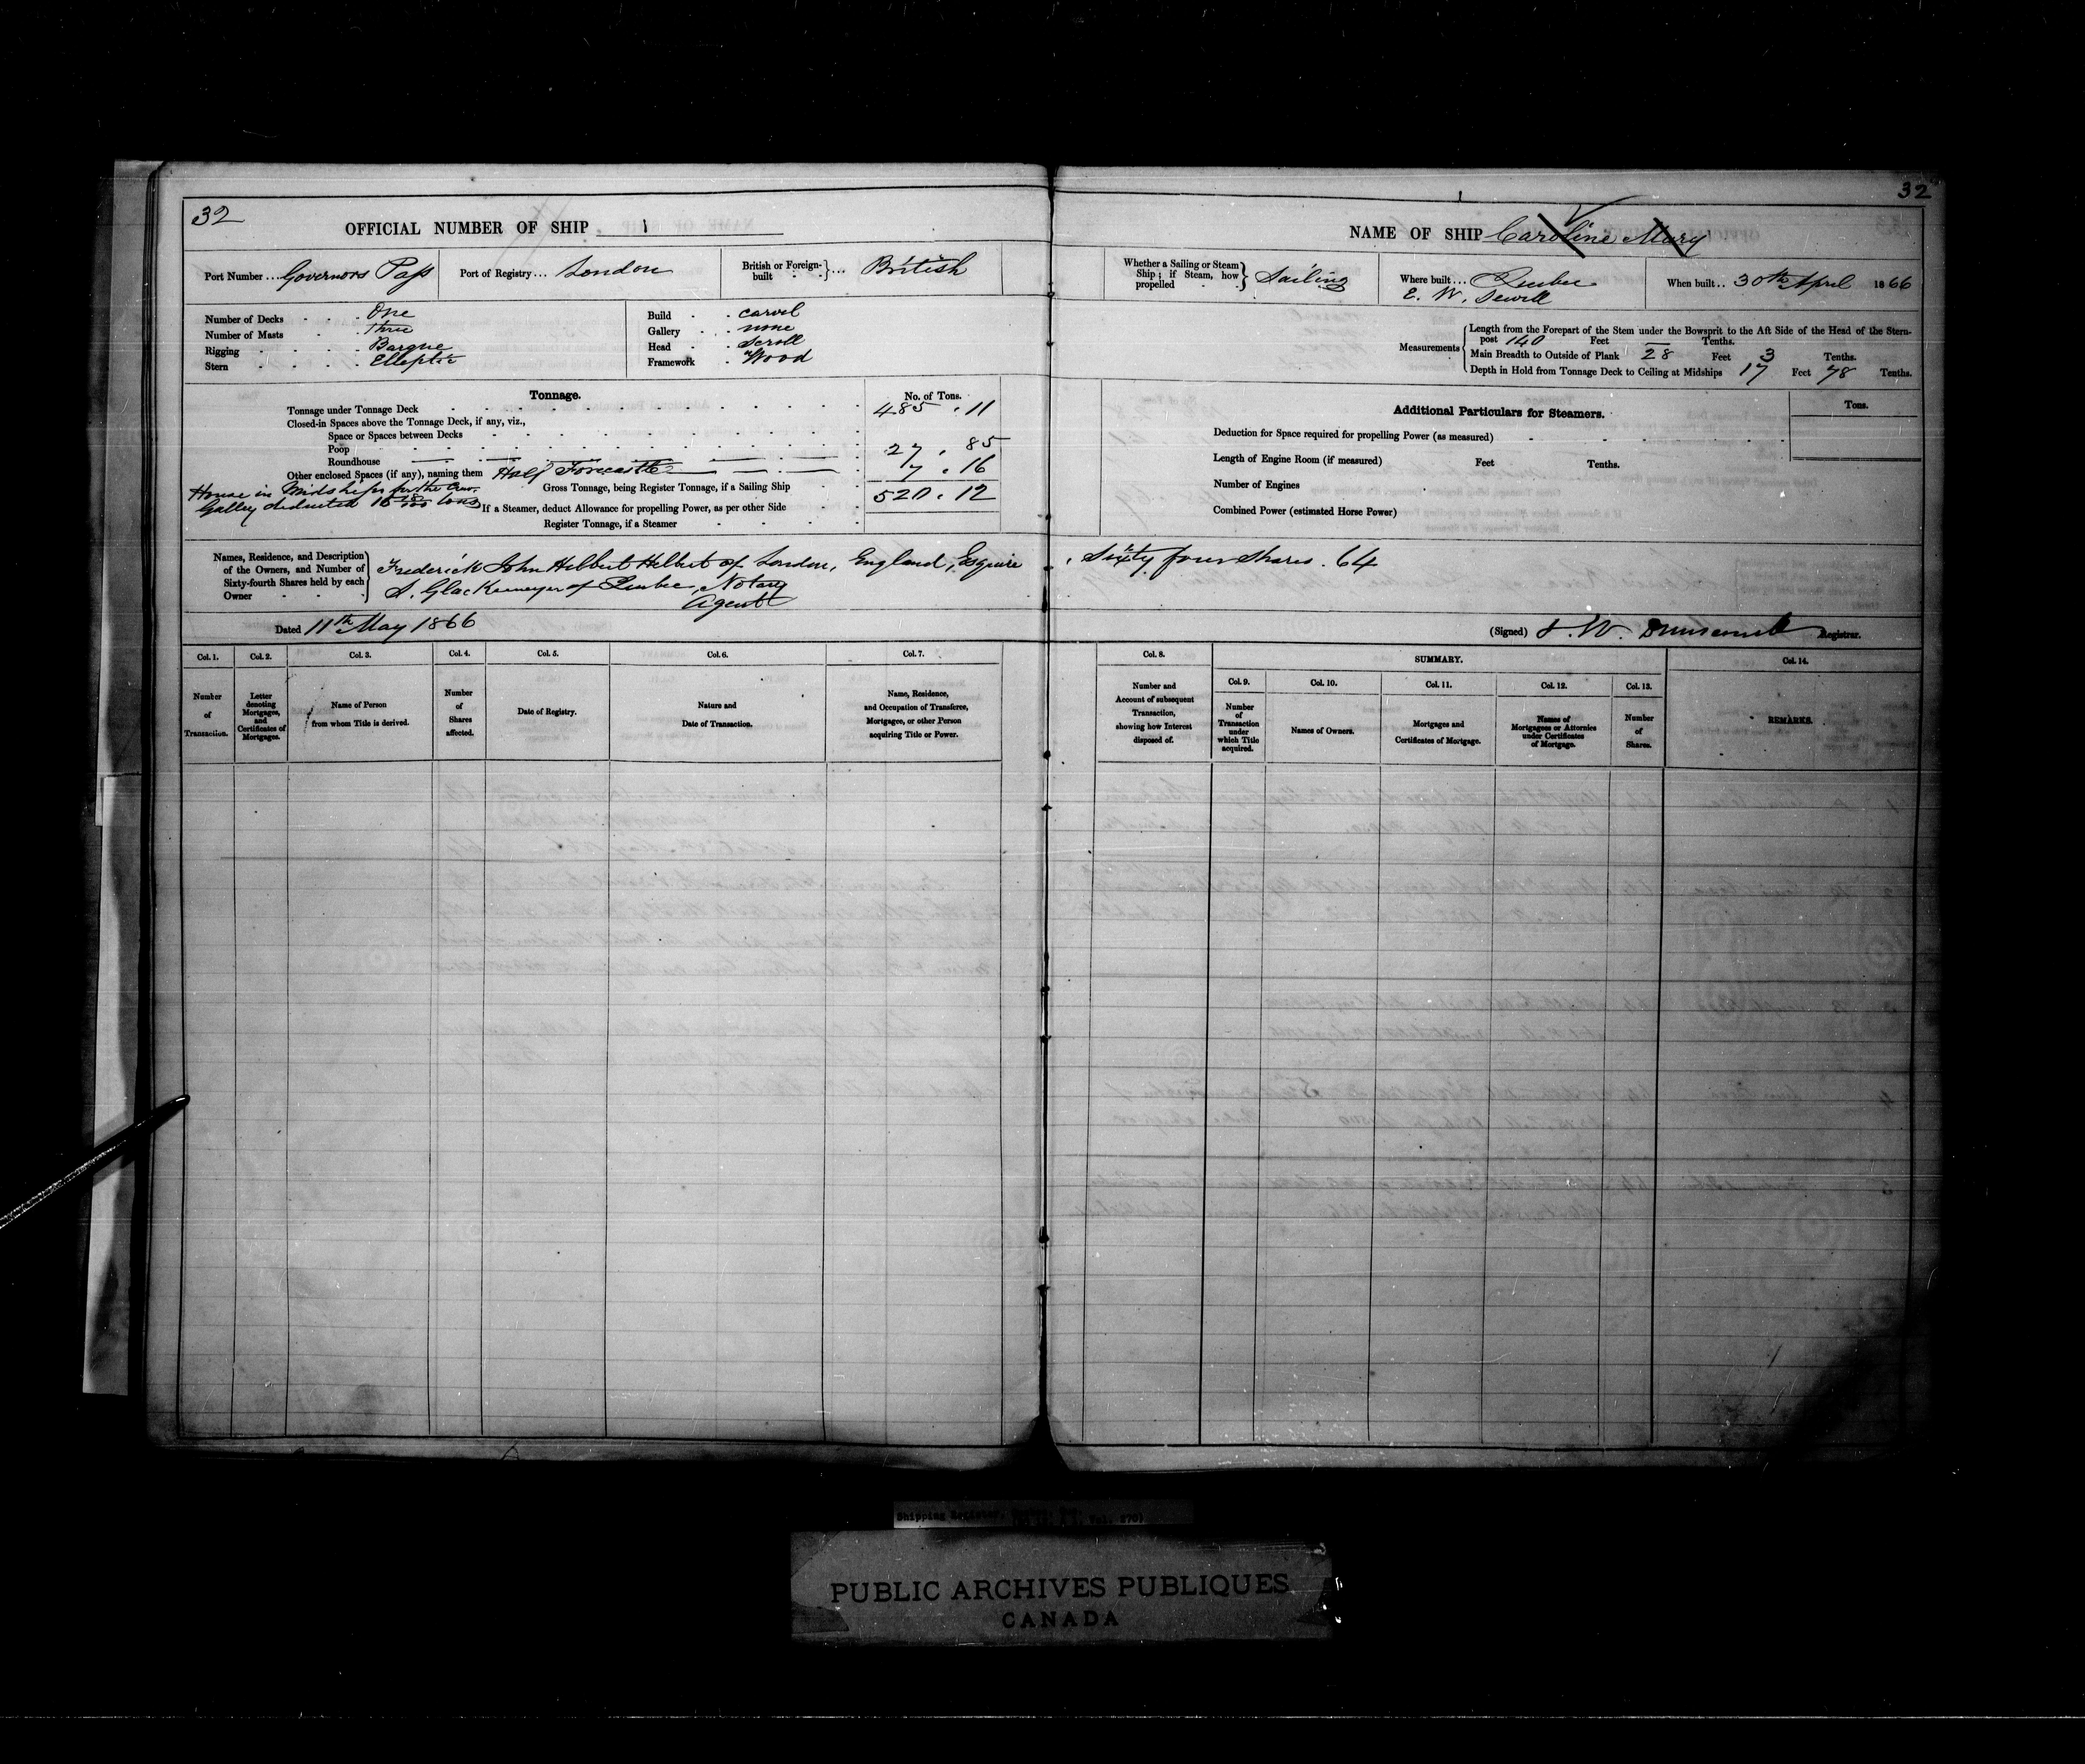 32
OFFICIAL NUMBER OF SHIP 1
Port Number ... Governors Pass
Port of Registry ... London
British or Foreign-built ... British
Number of Decks . . . One
Number of Masts . . . Three
Rigging . . . . Barque
Stern . . . . Elleptic
Build . . carvel
Gallery . . none
Head . . Scroll
Framework . Wood
Tonnage.
No. of Tons.
Tonnage under Tonnage Deck 485 . 11
Closed-in Spaces above the Tonnage Deck, if any, viz.,
Space or Spaces between Decks
Poop 27 . 85
Roundhouse
Other enclosed Spaces (if any), naming them Half Forecastle 7 . 16
House in Midships for the Crew
Galley deducted 16 tons
Gross Tonnage, being Register Tonnage, if a Sailing Ship 520 . 12
If a Steamer, deduct Allowance for propelling Power, as per other Side
Register Tonnage, if a Steamer
Names, Residence, and Description of the Owners, and Number of Sixty-fourth Shares held by each Owner
Frederick John Hilbert Hilbert of London, England, Esquire, Sixty four Shares. 64
S. Glackemeyer of Quebec, Notary
Agent
Dated 11th May 1866
Col. 1.
Number of Transaction.
Col. 2.
Letter denoting Mortgages, and Certificates of Mortgages.
Col. 3.
Name of Person from whom Title is derived.
Col. 4.
Number of Shares affected.
Col. 5.
Date of Registry.
Col. 6.
Nature and Date of Transaction.
Col. 7.
Name, Residence, and Occupation of Transferee, Mortgagee, or other Person acquiring Title or Power.
32
1
NAME OF SHIP Caroline Mary
Whether a Sailing or Steam Ship; if Steam, how propelled Sailing
Where built ... Quebec
E. W. Sewell
When built .. 30th April 1866
Measurements
Length from the Forepart of the Stem under the Bowsprit to the Aft Side of the Head of the Stern-
post 140 Feet — Tenths.
Main Breadth to Outside of Plank 28 Feet 3 Tenths.
Depth in Hold from Tonnage Deck to Ceiling at Midships 17 Feet 78 Tenths.
Additional Particulars for Steamers.
Tons.
Deduction for Space required for propelling Power (as measured)
Length of Engine Room (if measured) Feet Tenths.
Number of Engines
Combined Power (estimated Horse Power)
(Signed) J. W. Dunscomb Registrar.
Col. 8.
Number and Account of subsequent Transaction, showing how Interest disposed of.
SUMMARY.
Col. 9.
Number of Transaction under which Title acquired.
Col. 10.
Names of Owners.
Col. 11.
Mortgages and Certificates of Mortgage.
Col. 12.
Names of Mortgagees or Attornies under Certificates of Mortgage.
Col. 13.
Number of Shares.
Col. 14.
REMARKS.
Shipping Register,
PUBLIC ARCHIVES PUBLIQUES
CANADA